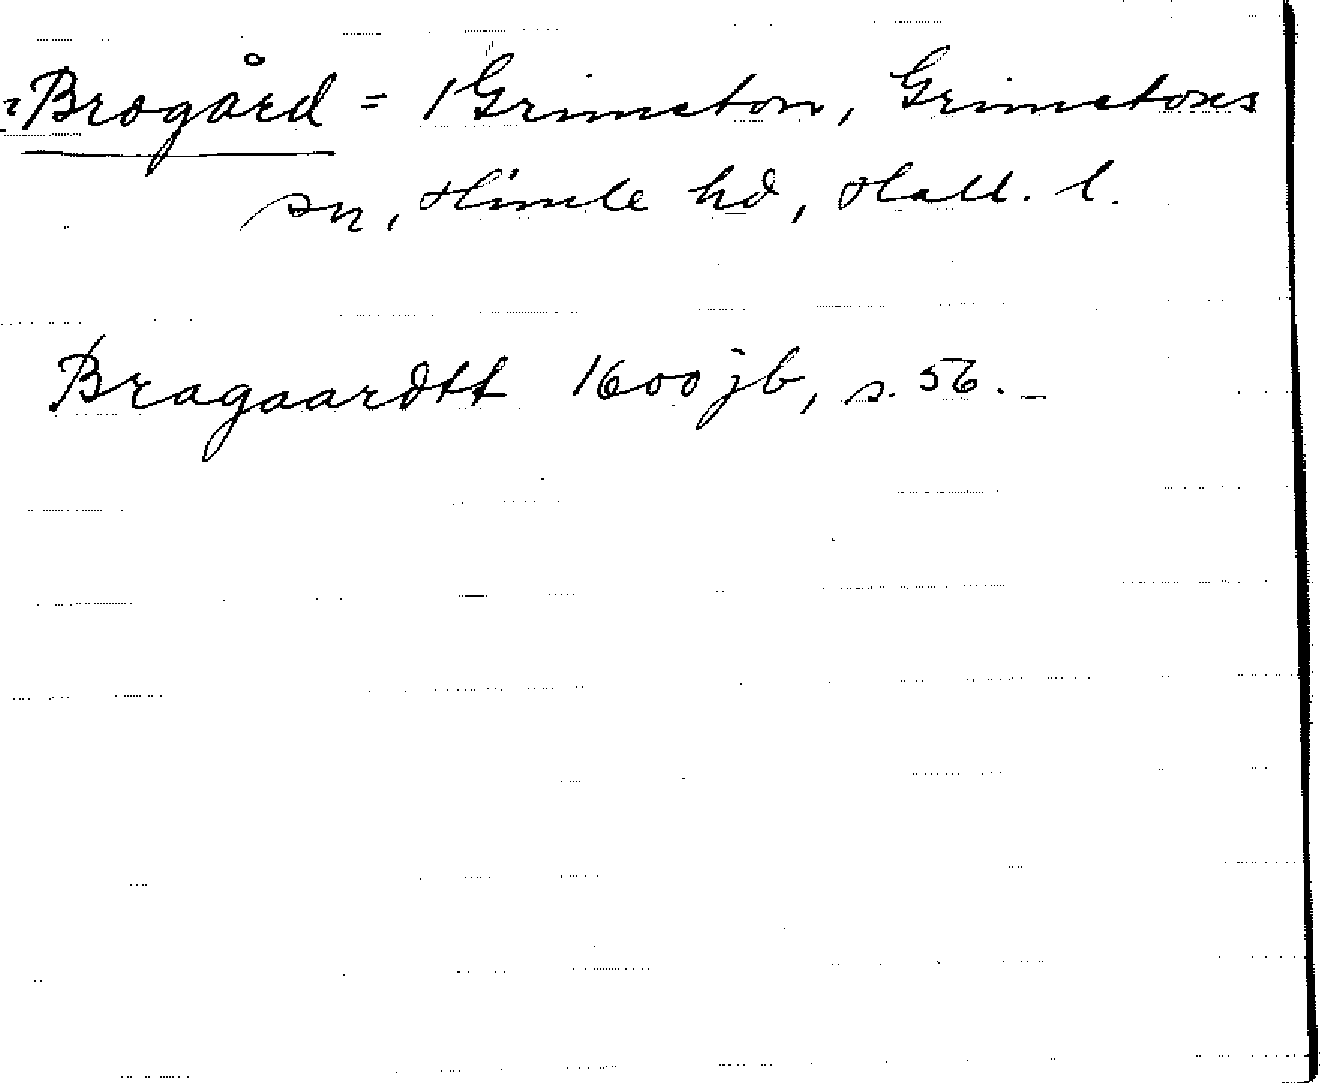 Brogård = 1 Grimeton, Grimetons
sn, Himle hd, Hall. l.
Bragaardtt 1600 jb, s. 56.